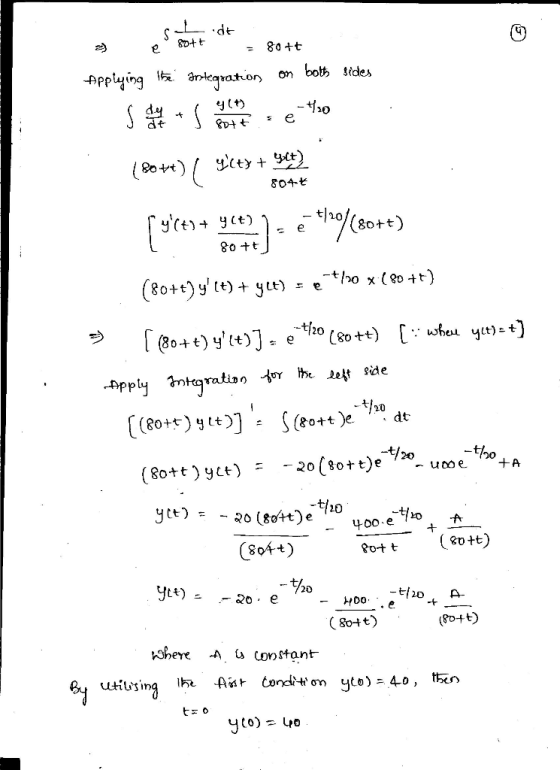 ④
⇒ e^{∫ 1/(80+t) · dt} = 80+t
Applying the integration on both sides
∫ dy/dt + ∫ y(t)/(80+t) = e^{-t/20}
(80+t) ( y'(t) + y(t)/(80+t)
[ y'(t) + y(t)/(80+t) ] = e^{-t/20}/(80+t)
(80+t) y'(t) + y(t) = e^{-t/20} × (80+t)
⇒ [(80+t) y'(t)] = e^{-t/20} (80+t) [∵ when y(t)=t]
Apply integration for the left side
[(80+t) y(t)]' = ∫(80+t)e^{-t/20}. dt
(80+t) y(t) = -20(80+t)e^{-t/20} - 400e^{-t/20} + A
y(t) = - 20(80+t)e^{-t/20}/(80+t) - 400.e^{-t/20}/(80+t) + A/(80+t)
y(t) = -20. e^{-t/20} - 400./(80+t) . e^{-t/20} + A/(80+t)
Where A is constant
By utilising the first condition y(0) = 40, then
t=0
y(0) = 40